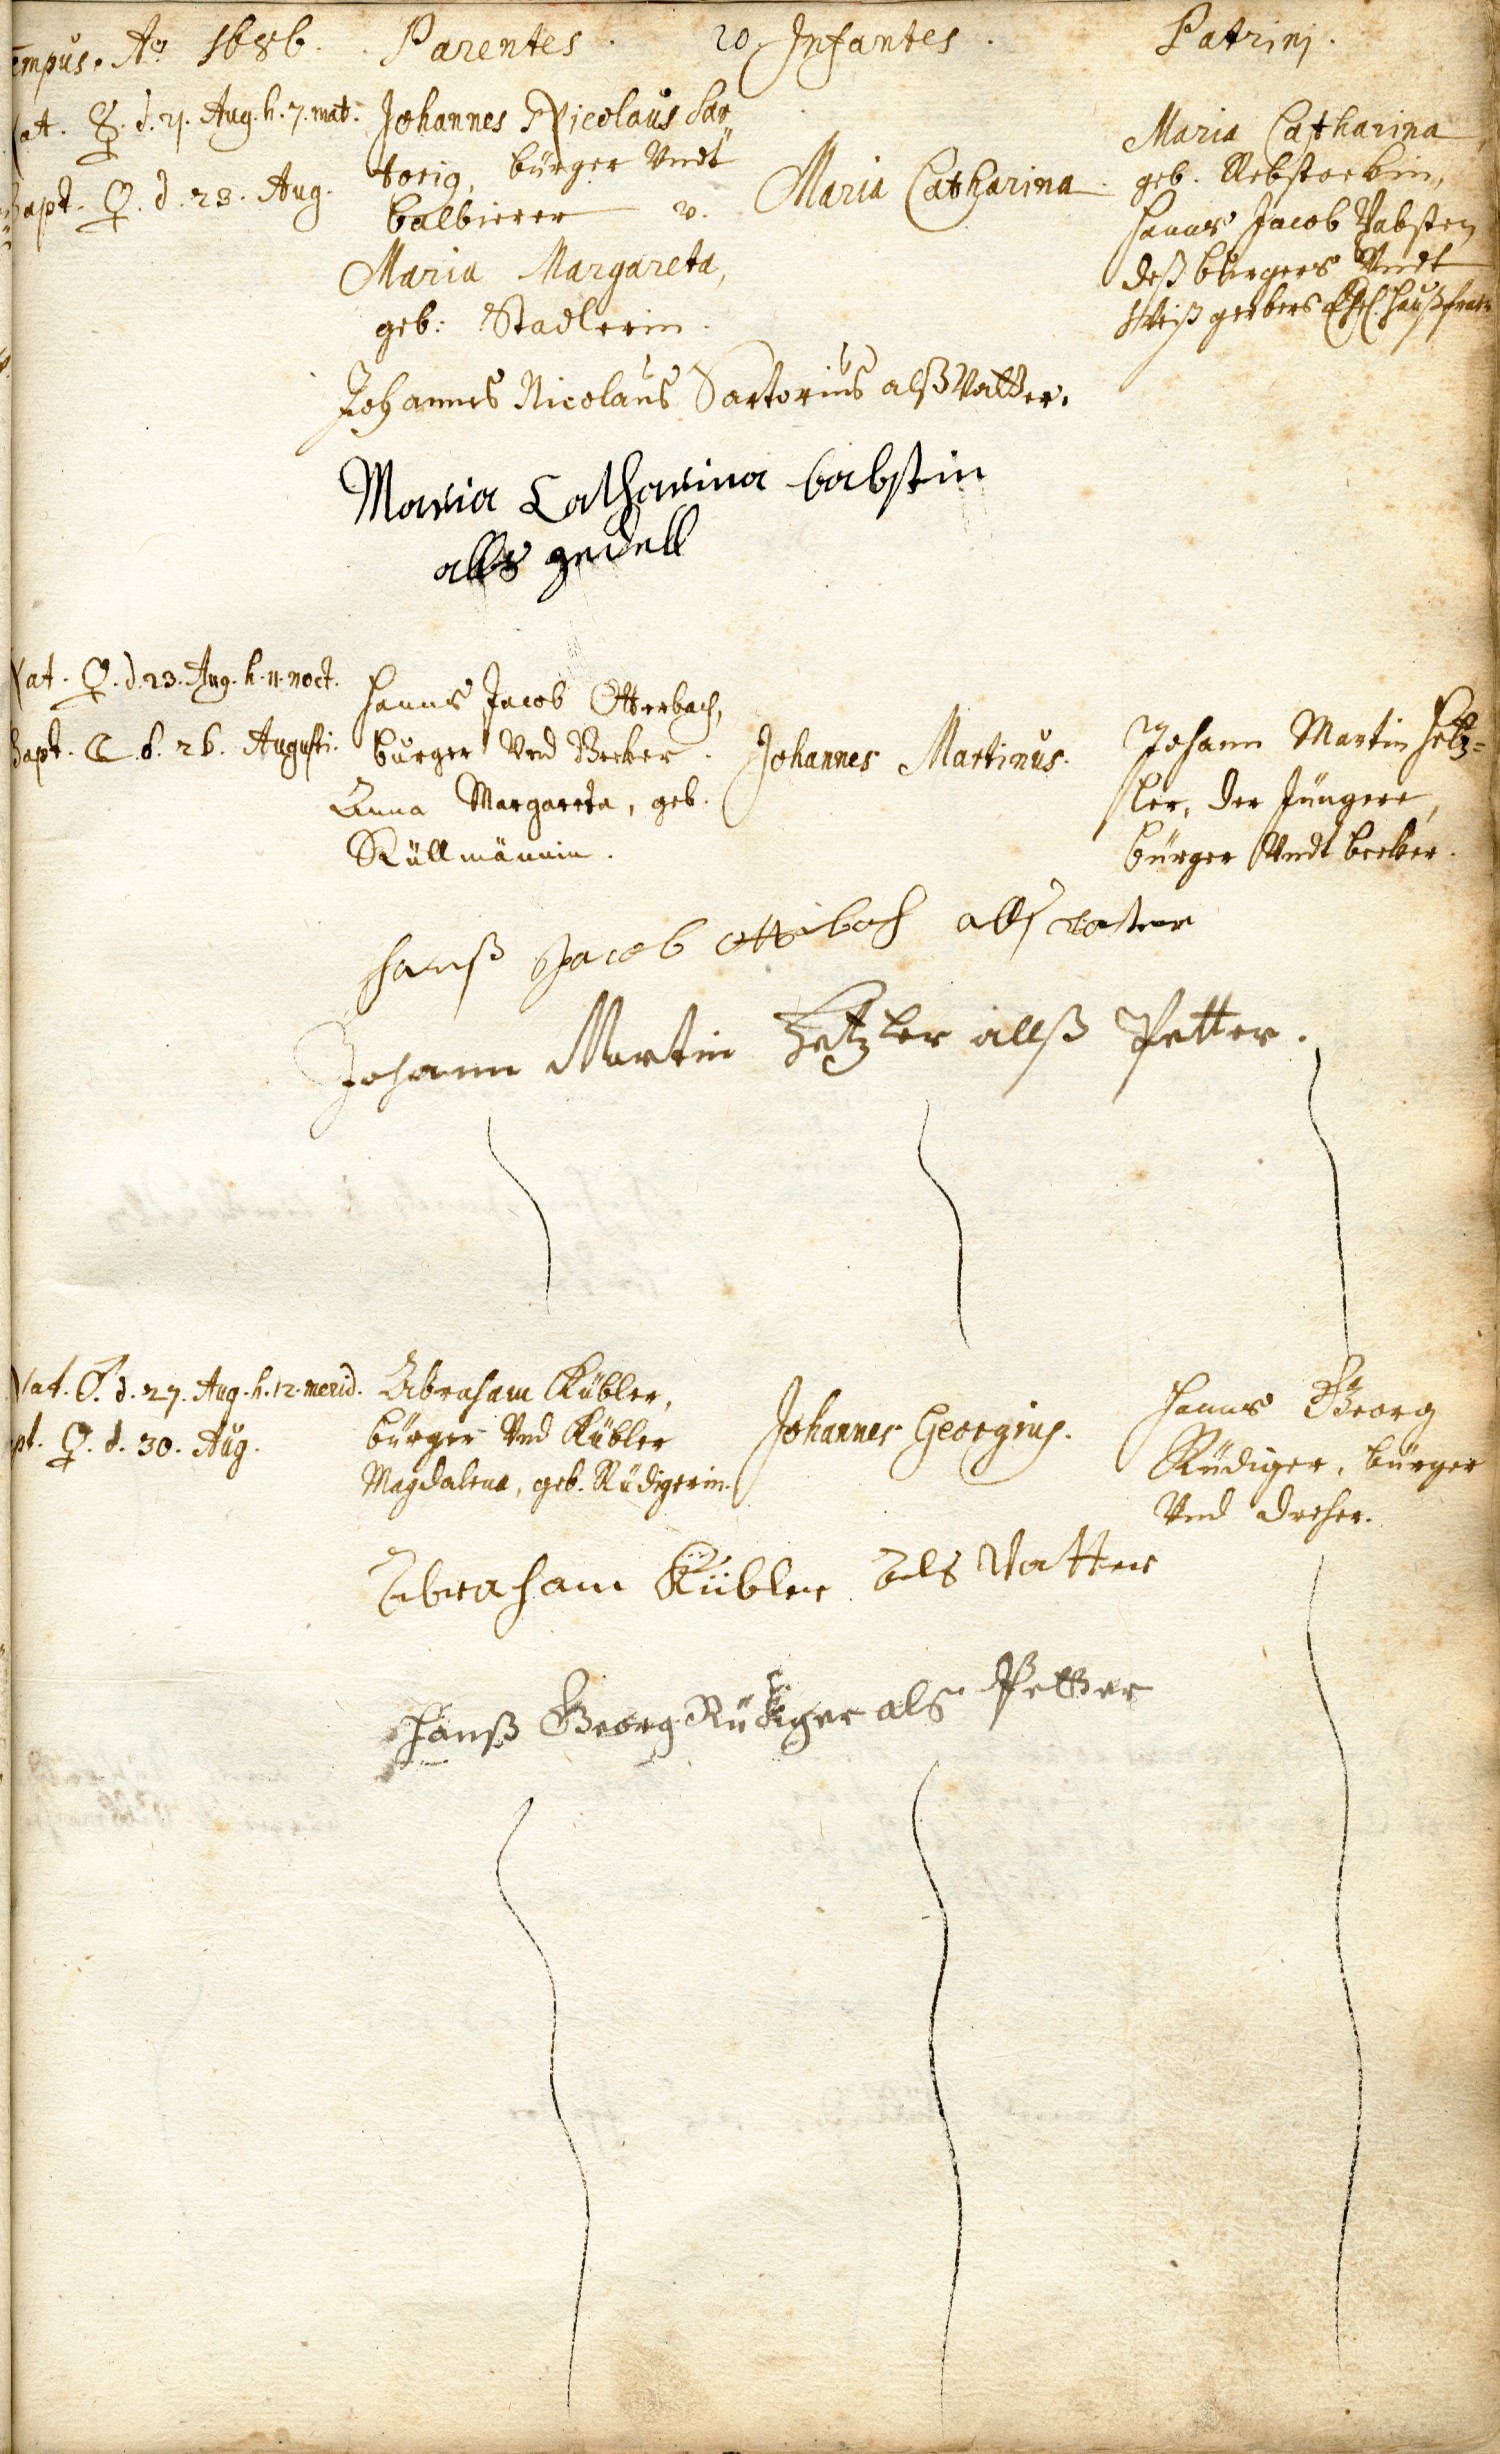 empus. Aō 1686. Parentes. 20 Infantes. Patrinj.
Nat. ☿. d. 21. Aug. h. 7. mat.
bapt. ♀. d. 23. Aug.
Johannes Nicolaus Sar
torig, bürger Vndt
balbierer v.
Maria Margareta,
geb: Stadlerin.
Maria Catharina.
Maria Catharina
geb. Rebstockin,
Hanns Jacob Pabsten
deß burgers Vndt
Weißgerbers Ehel. haußfraw
Johannes Nicolaus Sartorius alß Vatter.
Maria Catharina babstin
alls gedell
Nat. ♀. d. 23. Aug. h. 11. noct.
bapt. ☾ d. 26. Augusti.
Hanns Jacob Otterbach,
burger Vnd Becker.
Anna Margareta, geb.
Küllmännin.
Johannes Martinus.
Johann Martin Hetz=
ler, der Jüngere,
bürger Vndt becker.
Hanß Jacob Otterbach allß vatter
Johann Martin Hetzler allß Petter.
Nat. ♂. d. 27. Aug. h. 12. merid.
pt. ♀. d. 30. Aug.
Abraham Kübler,
bürger Vnd Kübler
Magdalena, geb. Rüdigerin.
Johannes Georgius.
Hanns Georg
Rüdiger, bürger
Vnd dreher.
Abraham Kübler Als Vatter
Hanß Georg Rüdiger als Petter